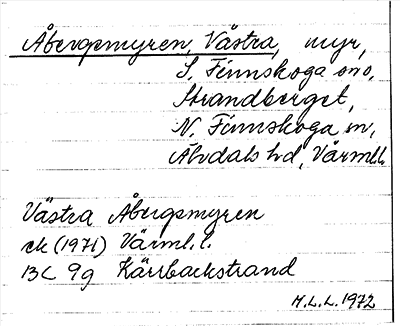 Åbergsmyren, Västra, myr,
S. Finnskoga sn o.
Strandberget,
N. Finnskoga sn,
Älvdals hd, Värml.
Västra Åbergsmyren
ek (1971) Värml. l.
13C 9g Kärrbackstrand
H.L.L. 1972